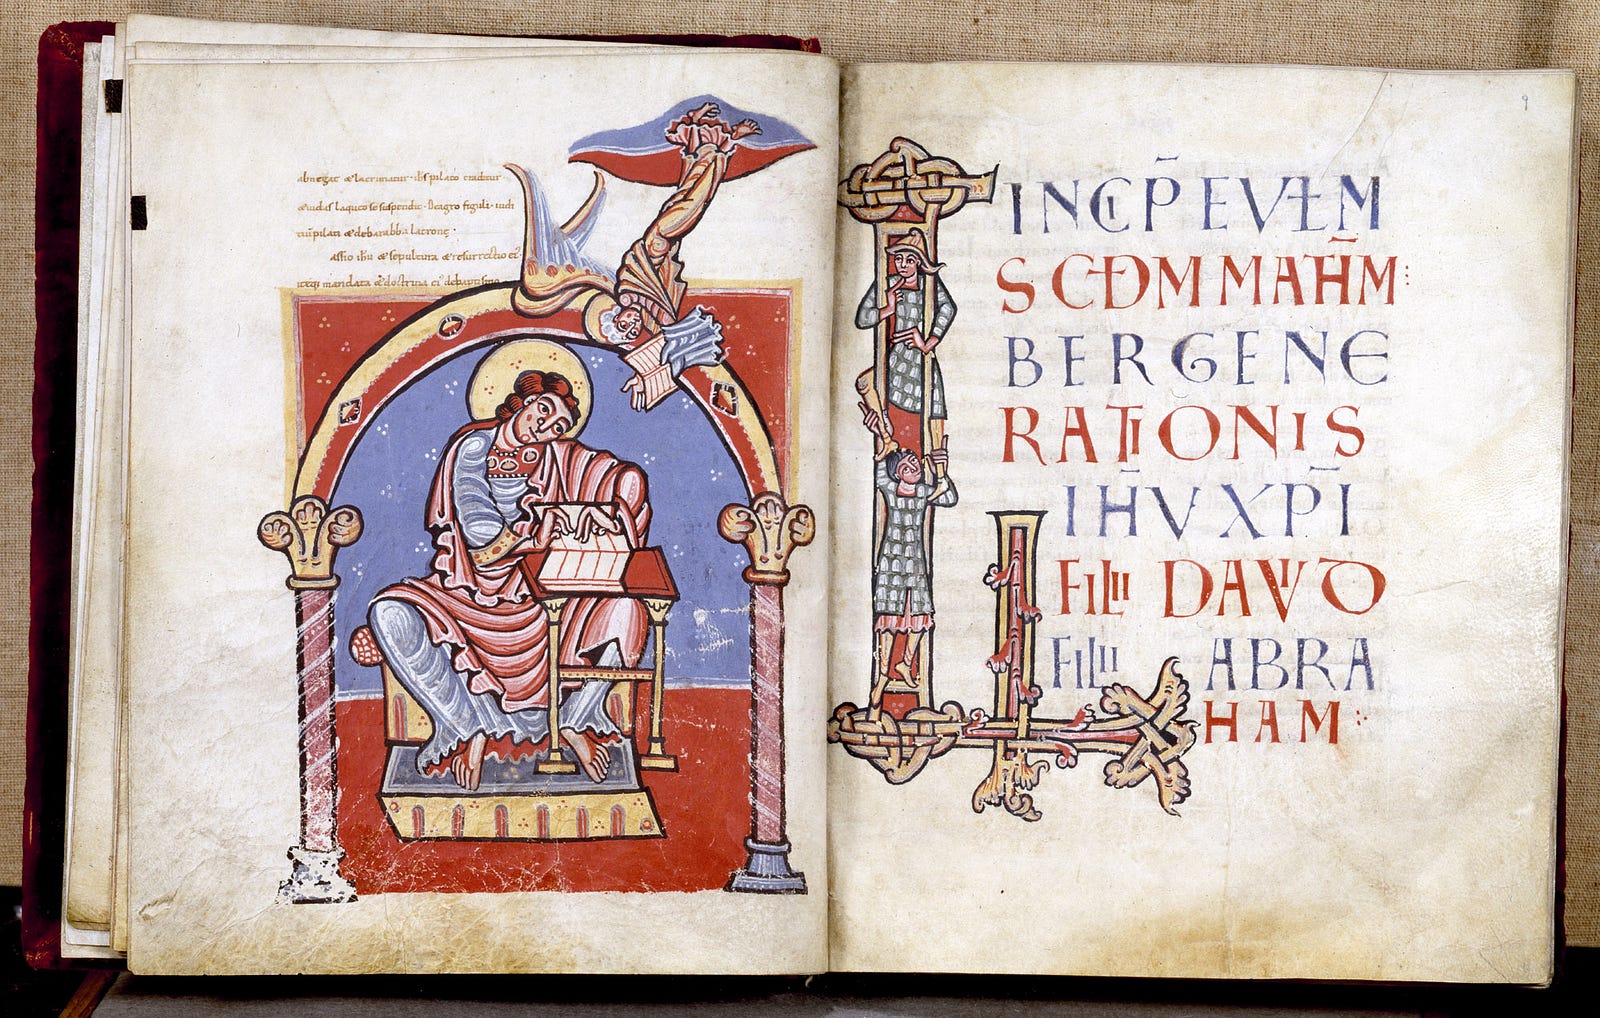 abnegat & lacrimatur · ihs pilato traditur
& iudas laqueo se suspendit · De agro figuli · iudi
tiū pilati & de barabba latrone ·
assio ihu & sepultura & resurrectio ei'
mandata & doctrina ei' de baptismo
9
INCIP̄ EVŁM
SCĐM MATH̄M
LI
BER GENE
RATIONIS
IH̄V XP̄I
FILII DAVID
FILII ABRA
HAM